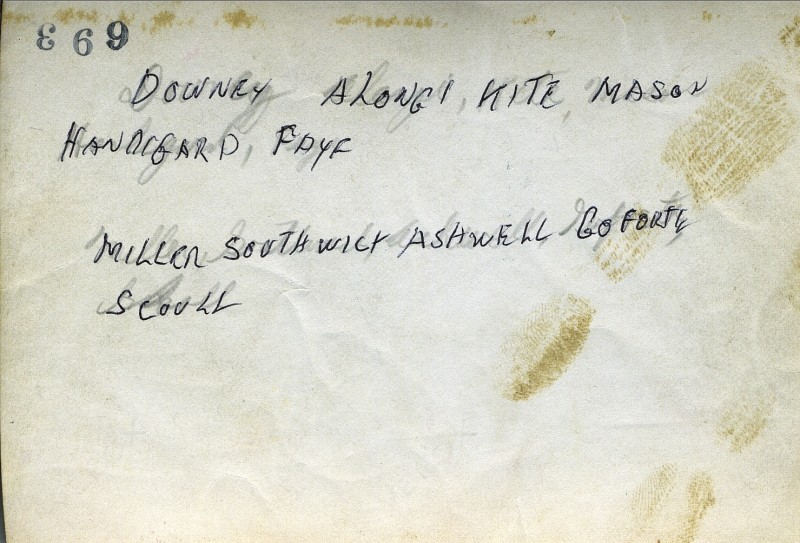 E69
DOWNEY ALONGI, KITE, MASON
HANDEGARD, FAYE
MILLER SOUTHWICK ASHWELL GOFORTH
SCOULL